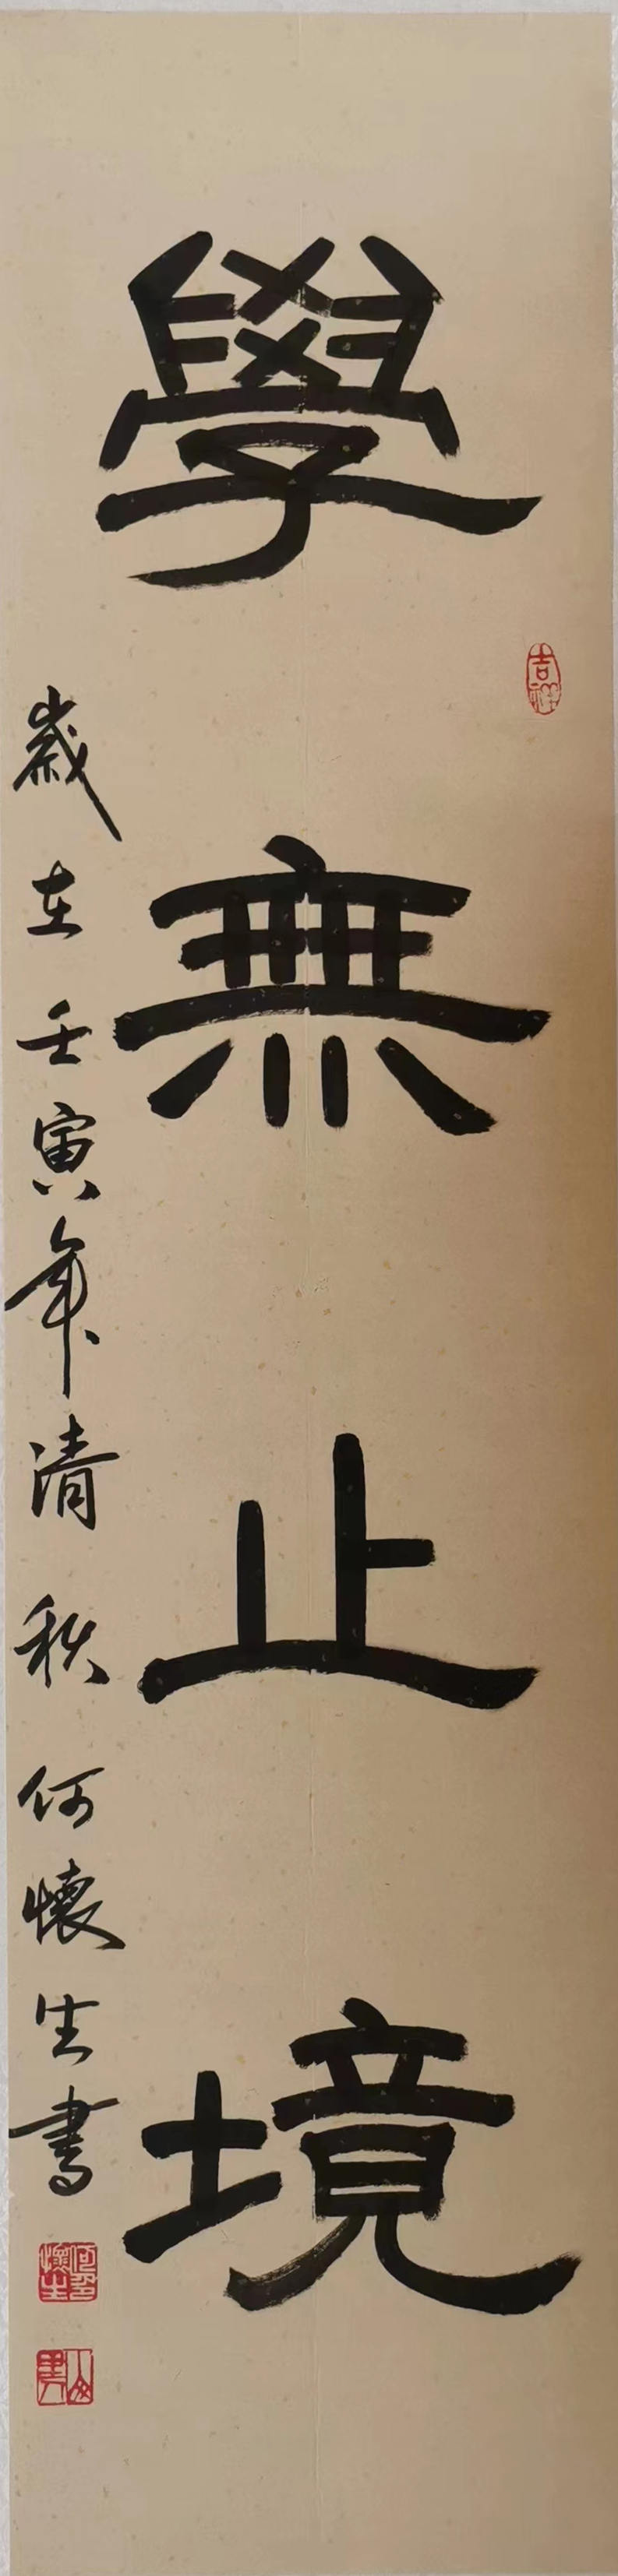 學無止境
吉祥
歲在壬寅年清秋何懷生書